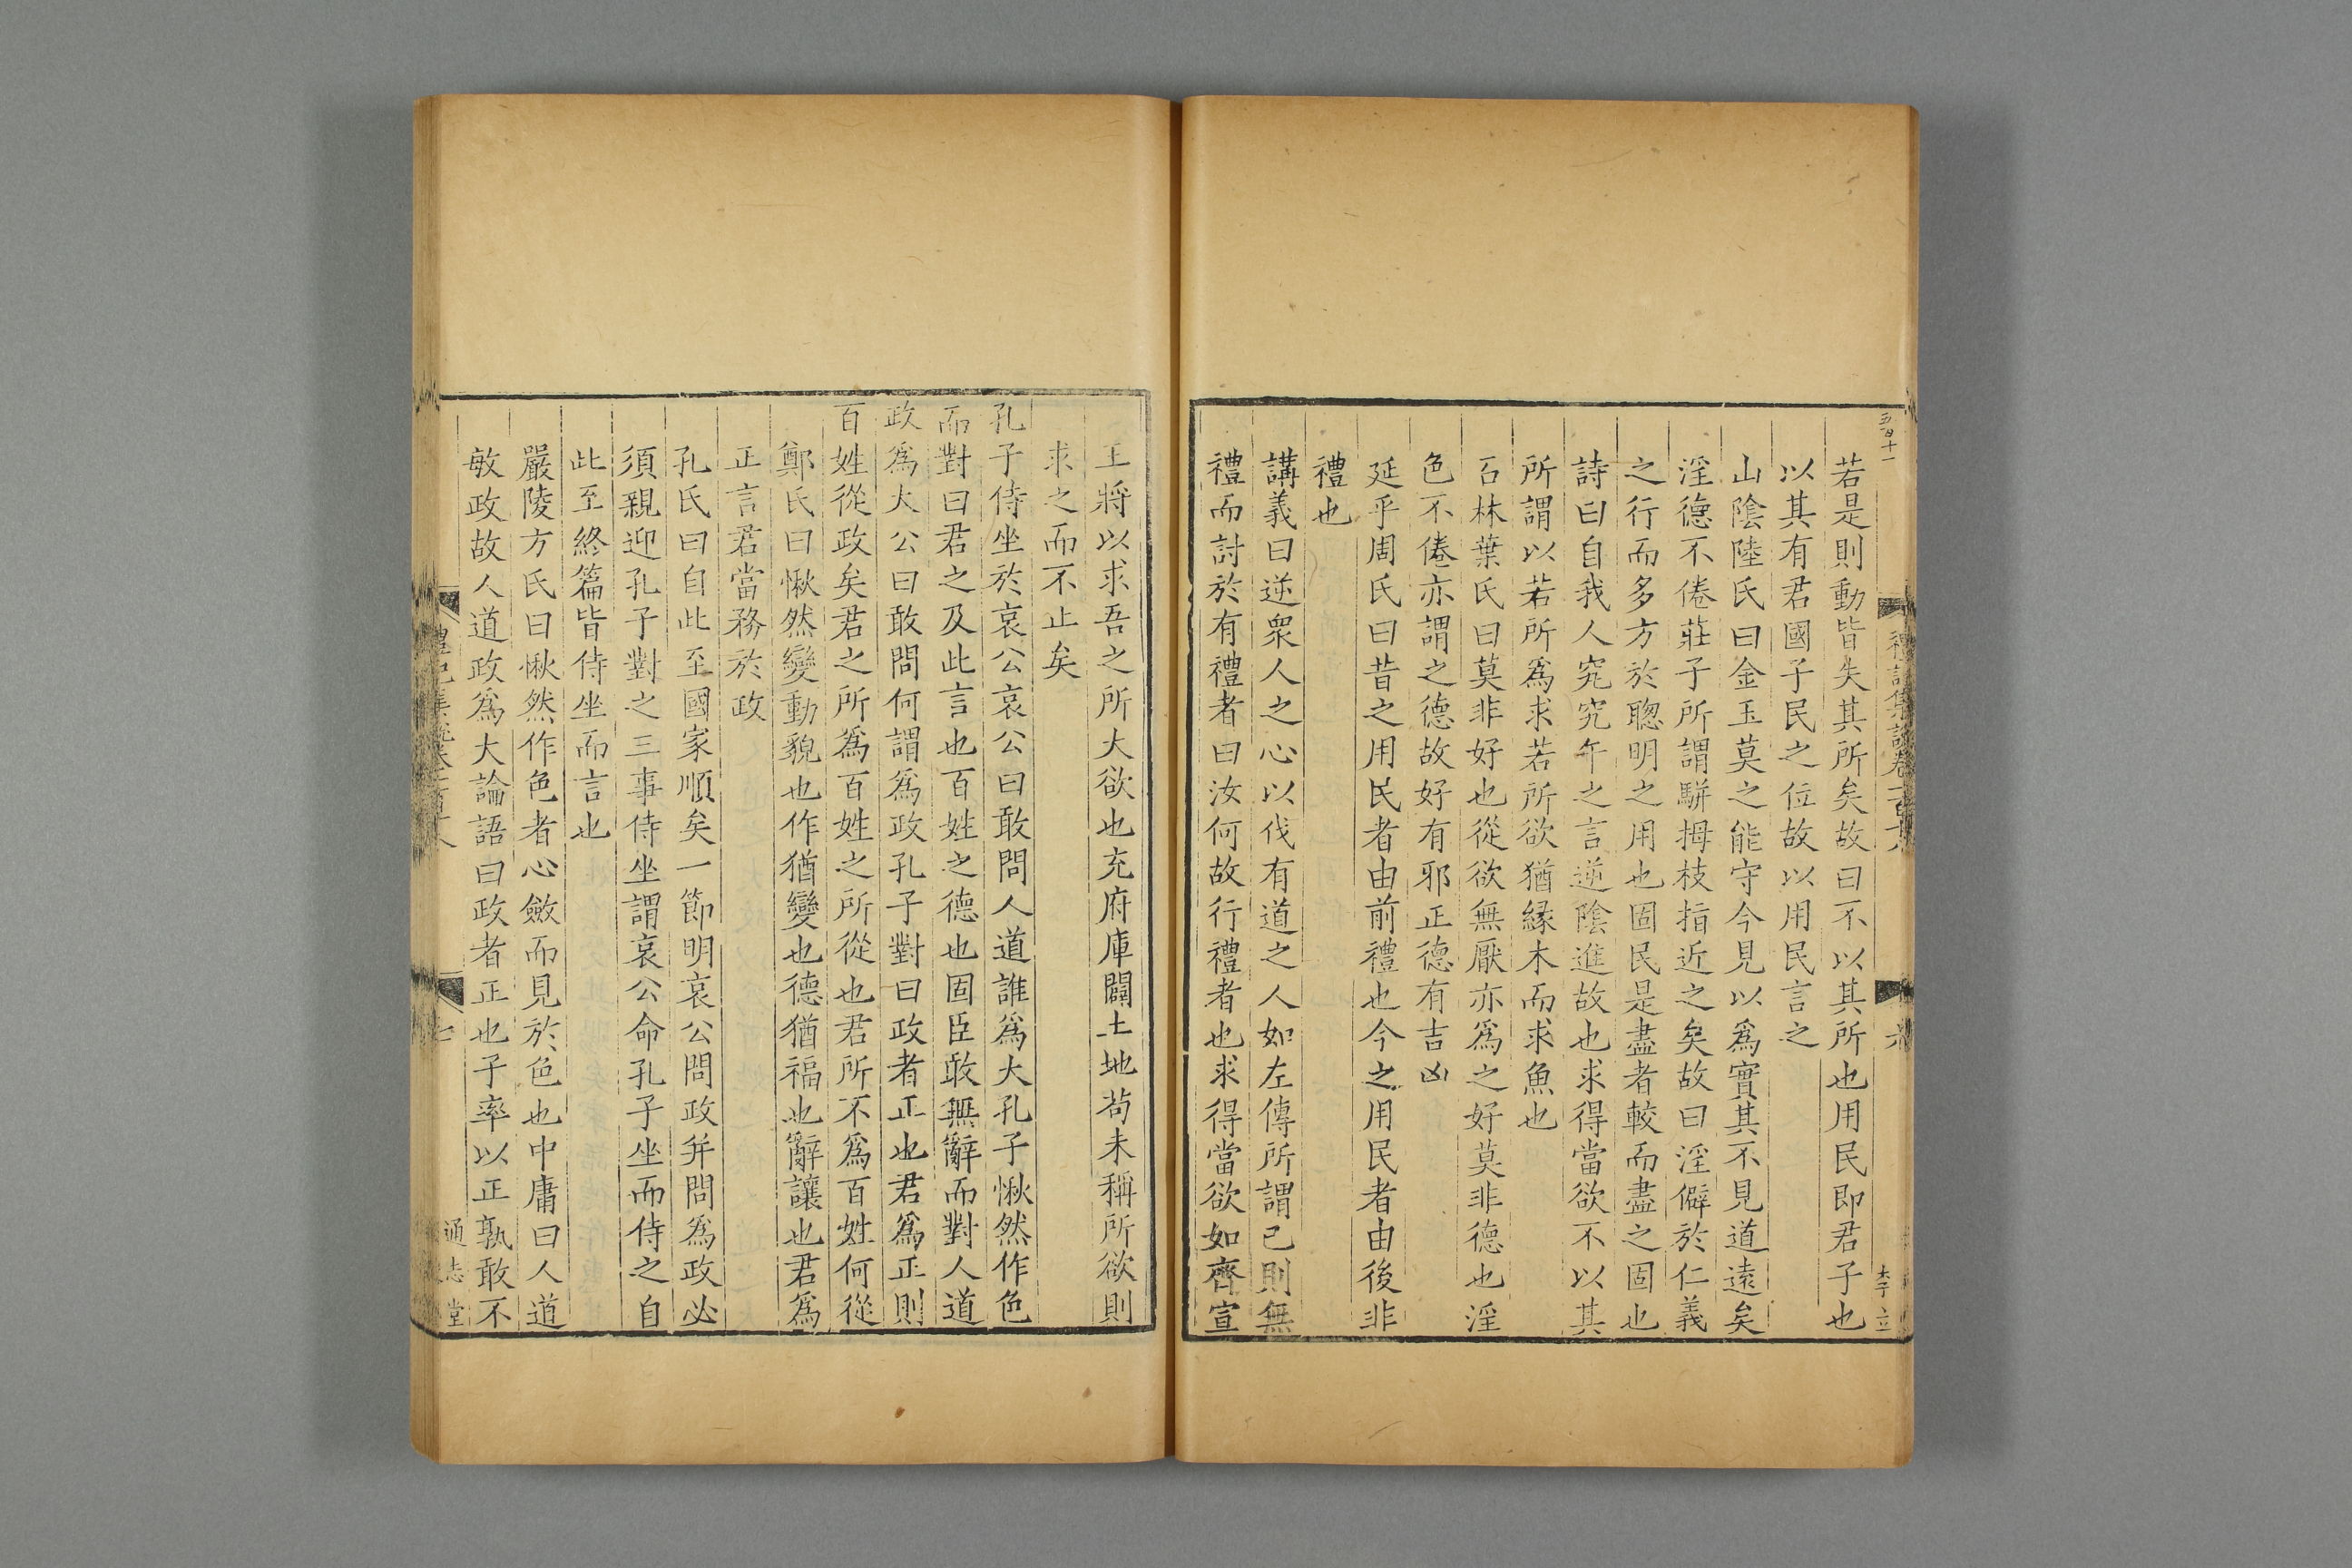 五百十一
禮記集說卷一百十八
六
李立
若是則動皆失其所矣故曰不以其所也用民即君子也
以其有君國子民之位故以用民言之
山陰陸氏曰金玉莫之能守今見以爲實其不見道遠矣
淫德不倦莊子所謂駢拇枝指近之矣故曰淫僻於仁義
之行而多方於聰明之用也固民是盡者較而盡之固也
詩曰自我人究究午之言逆陰進故也求得當欲不以其
所謂以若所爲求若所欲猶緣木而求魚也
石林葉氏曰莫非好也從欲無厭亦爲之好莫非德也淫
色不倦亦謂之德故好有邪正德有吉凶
延平周氏曰昔之用民者由前禮也今之用民者由後非
禮也
講義曰逆衆人之心以伐有道之人如左傳所謂已則無
禮而討於有禮者曰汝何故行禮者也求得當欲如齊宣
王將以求吾之所大欲也充府庫闢土地苟未稱所欲則
求之而不止矣
孔子侍坐於哀公哀公曰敢問人道誰爲大孔子愀然作色
而對曰君之及此言也百姓之德也固臣敢無辭而對人道
政爲大公曰敢問何謂爲政孔子對曰政者正也君爲正則
百姓從政矣君之所爲百姓之所從也君所不爲百姓何從
鄭氏曰愀然變動貌也作猶變也德猶福也辭讓也君爲
正言君當務於政
孔氏曰自此至國家順矣一節明哀公問政并問爲政必
須親迎孔子對之三事侍坐謂哀公命孔子坐而侍之自
此至終篇皆侍坐而言也
嚴陵方氏曰愀然作色者心斂而見於色也中庸曰人道
敏政故人道政爲大論語曰政者正也子率以正孰敢不
禮記集說卷一百十八
七
通志堂